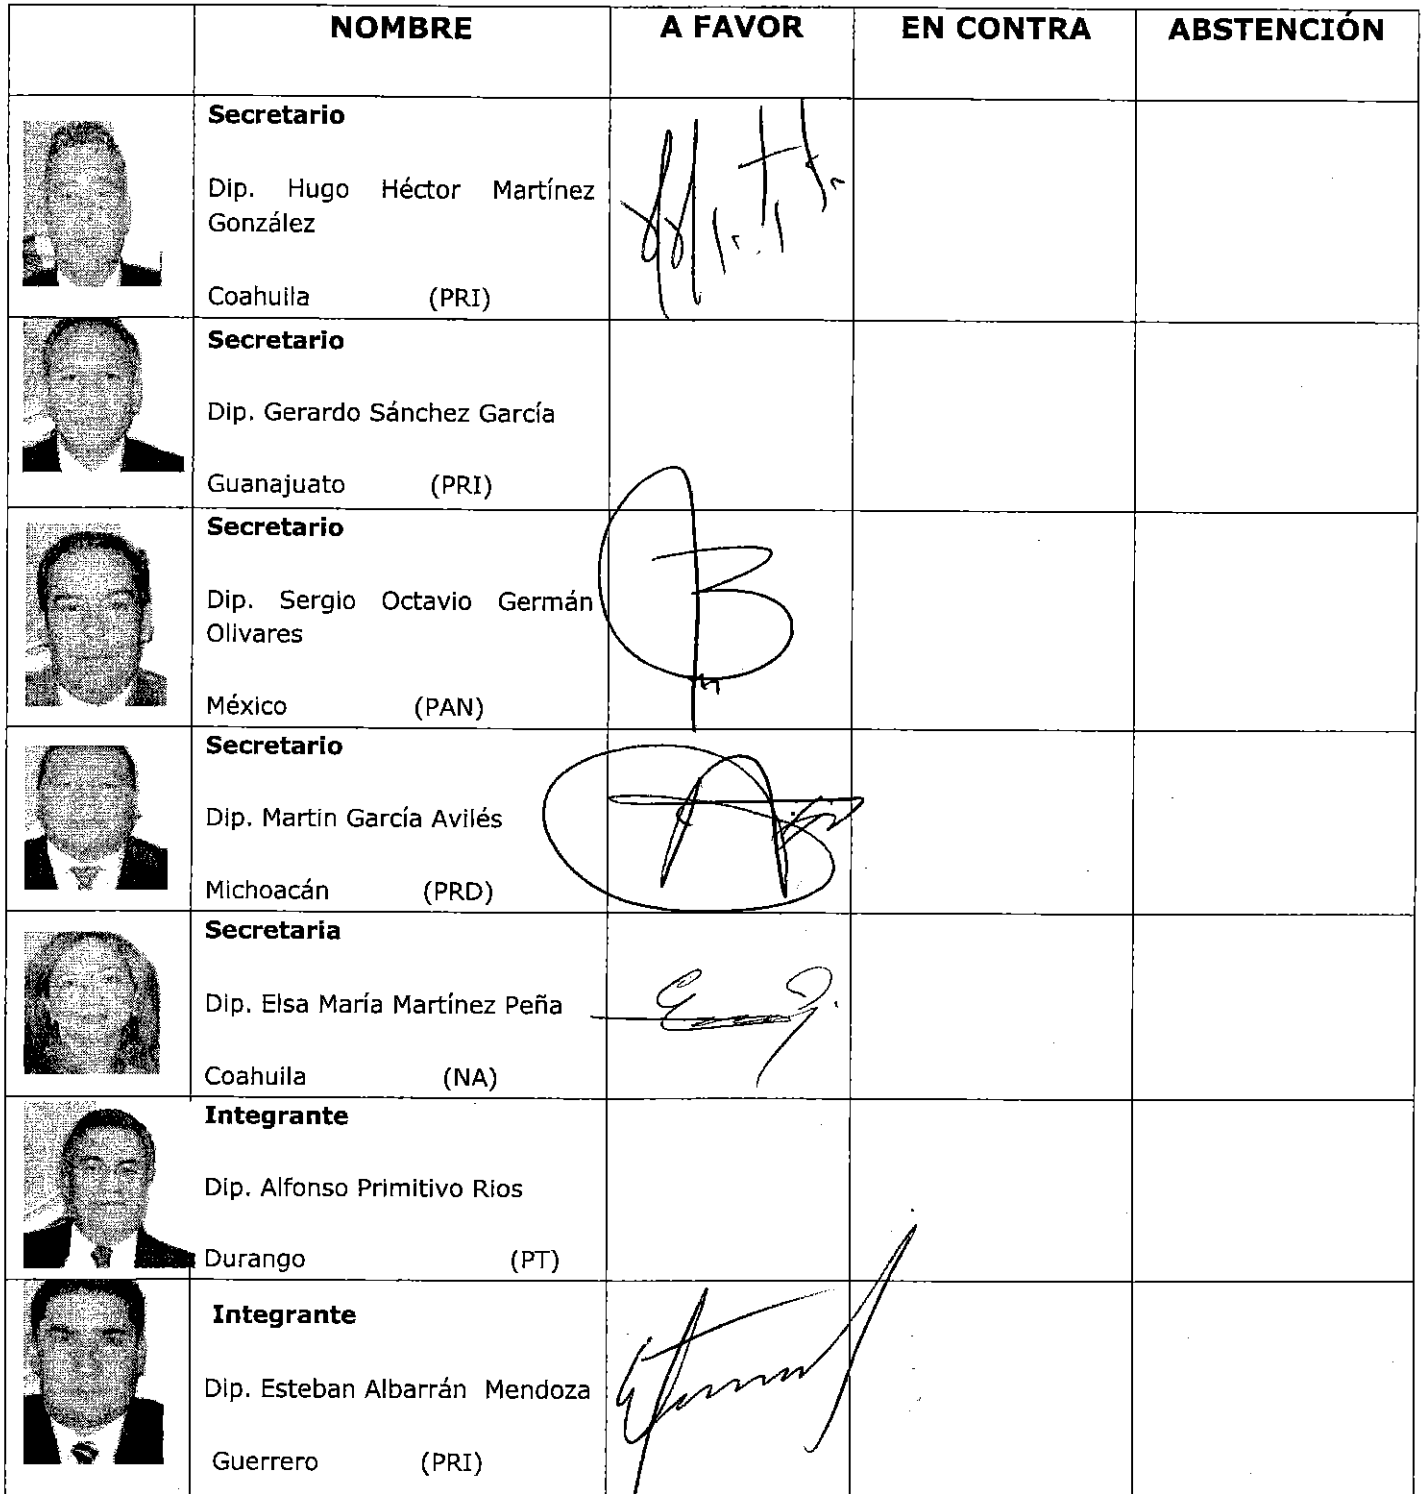 NOMBRE A FAVOR EN CONTRA ABSTENCIÓN
Secretario
Dip. Hugo Héctor Martínez
González
Coahuila (PRI)
Secretario
Dip. Gerardo Sánchez García
Guanajuato (PRI)
Secretario
Dip. Sergio Octavio Germán
Olivares
México (PAN)
Secretario
Dip. Martin García Avilés
Michoacán (PRD)
Secretaria
Dip. Elsa María Martínez Peña
Coahuila (NA)
Integrante
Dip. Alfonso Primitivo Rios
Durango (PT)
Integrante
Dip. Esteban Albarrán Mendoza
Guerrero (PRI)